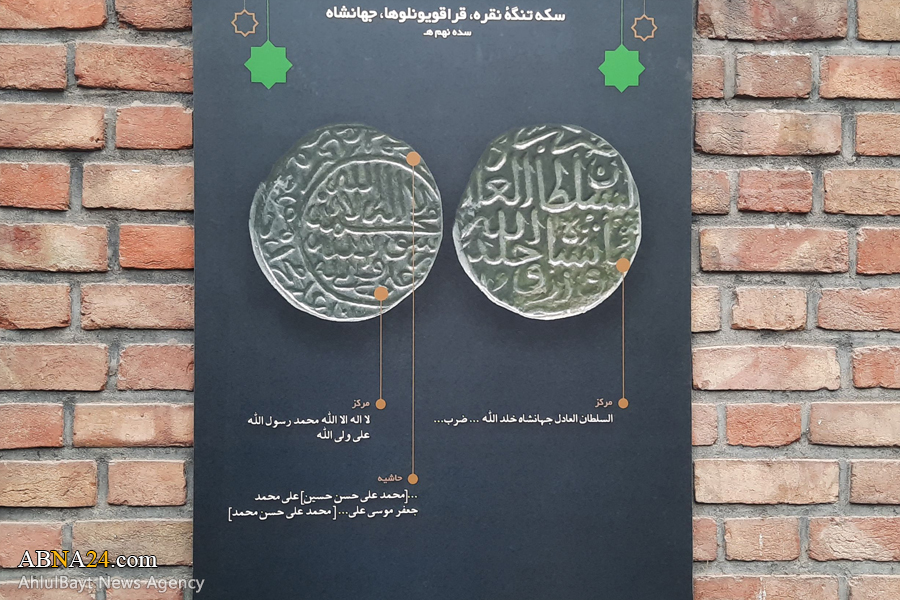 سکه تنگهٔ نقره، قراقویونلوها، جهانشاه
سده نهم هـ
مرکز
السلطان العادل جهانشاه خلد الله ... ضرب...
مرکز
لا اله الا الله محمد رسول الله
علی ولی الله
حاشیه
...[محمد علی حسن حسین] علی محمد
جعفر موسی علی... [ محمد علی حسن محمد]
ABNA24.com
AhlulBayt News Agency